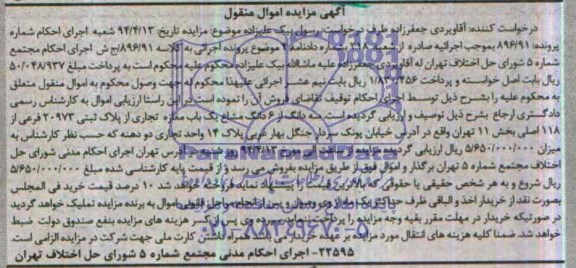 آگهی مزایده اموال منقول
درخواست کننده: آقاویردی جعفرزاده طرف درخواست: رسول بیک علیزاده موضوع: مزایده تاریخ: 94/4/13 شعبه اجرای احکام شماره
پرونده: 896/91 بموجب اجرائیه صادره از شعبه 218 شماره دادنامه موضوع پرونده اجرائی به کلاسه 896/91 ج ش اجرای احکام مجتمع
شماره 5 شورای حل اختلاف تهران له آقاویردی جعفرزاده علیه ماشاالله بیک علیزاده محکوم علیه محکوم است به پرداخت مبلغ 50/048/937
ریال بابت اصل خواسته و پرداخت ریال بابت نیم عشر اجرائی محکوم له جهت وصول محکوم به اموال منقول متعلق
به محکوم علیه را بشرح ذیل توسط اجرای احکام توقیف تقاضای فروش آن را نموده است در این راستا ارزیابی اموال به کارشناس رسمی
دادگستری ارجاع بشرح ذیل توصیف و ارزیابی گردیده است. سه دانگ از 6 دانگ مشاع یک باب مغازه تجاری از پلاک ثبتی 20973 فرعی از
118 اصلی بخش 11 تهران واقع در آدرس خیابان پونک جنگل بهار غربی پلاک 14 واحد تجاری دو دهنه که حسب نظر کارشناس به
میزان 5/650/000/000 ریال ارزیابی گردیده مزایده از ساعت الی مورخ 94/4/13 روز شنبه در آدرس تهران اجرای احکام مدنی شورای حل
اختلاف مجتمع شماره 5 تهران برگذار و اموال فوق از طریق مزایده بفروش می رسد و از قیمت پایه کارشناسی شده مبلغ 5/650/000/000
ریال شروع و به هر شخص حقیقی یا حقوقی که بالاترین قیمت را پیشنهاد نماید فروخته خواهد شد 10 درصد قیمت خرید فی المجلس
بصورت نقد از خریدار اخذ و الباقی ظرف حداکثر یک ماه از وی وصول و پس از انجام مراحل قانونی اموال به برنده مزایده تملیک خواهد گردید
در صورتیکه خریدار در مهلت مقرر بقیه وجه مزایده را پرداخت ننماید سپرده وی پس از کسر هزینه های مزایده بنفع صندوق دولت ضبط
خواهد شد. ضمنا کلیه هزینه های انتقال مورد مزایده بر عهده خریدار می باشد همراه داشتن کارت ملی جهت شرکت در مزایده الزامی است.
22595- اجرای احکام مدنی مجتمع شماره 5 شورای حل اختلاف تهران
ParsNamadData
021-88349670-5